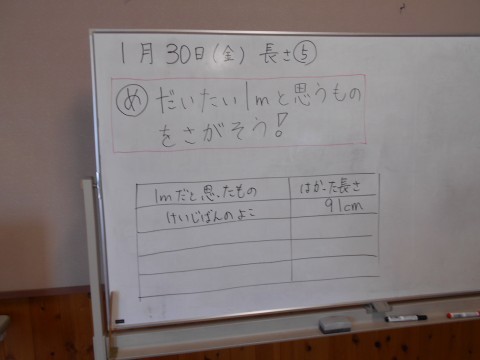 1月30日(金) 長さ⑤
め だいたい1mと思うもの
をさがそう!
1mだと思ったもの はかった長さ
けいじばんのよこ 91cm